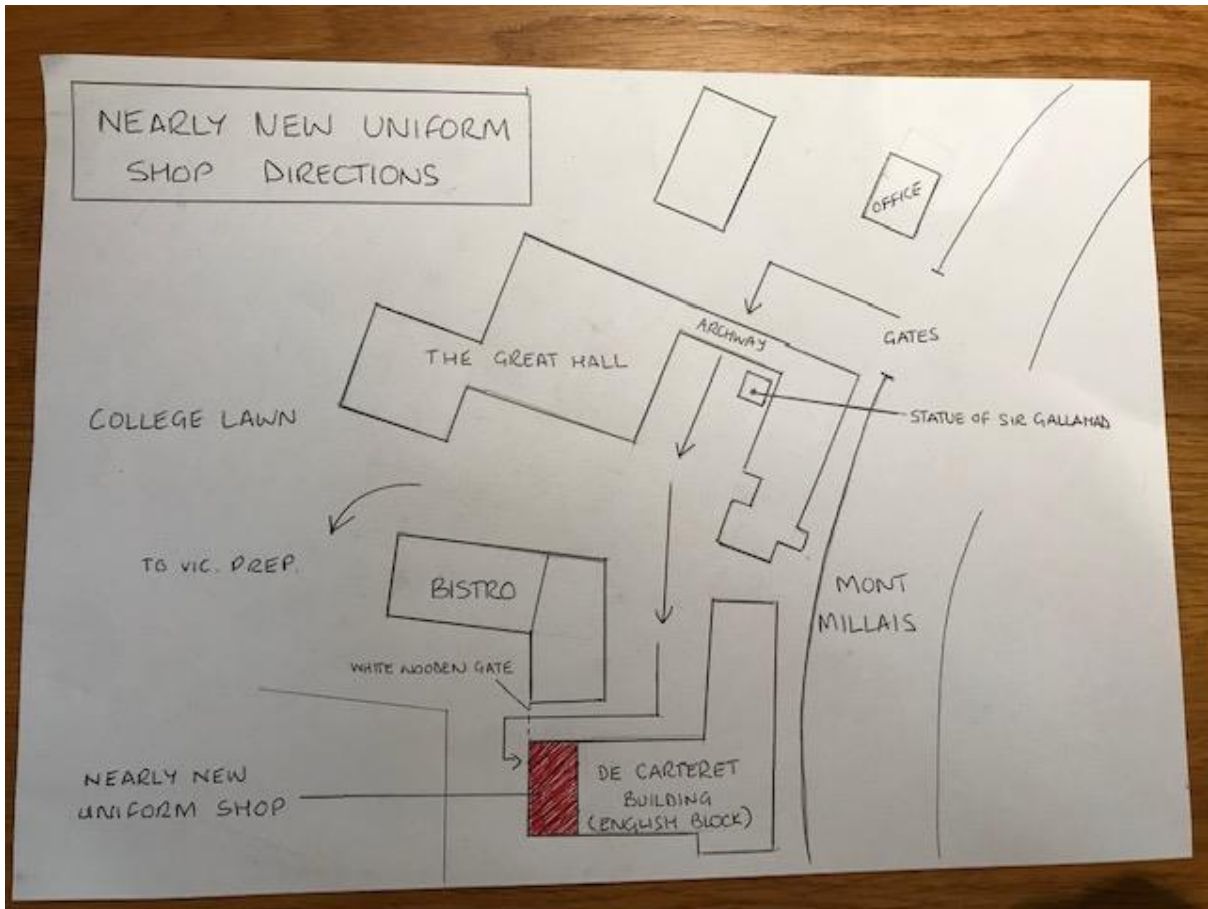 NEARLY NEW UNIFORM
SHOP DIRECTIONS
OFFICE
ARCHWAY
GATES
THE GREAT HALL
COLLEGE LAWN
STATUE OF SIR GALLAHAD
TO VIC. PREP.
BISTRO
MONT
MILLAIS
WHITE WOODEN GATE
NEARLY NEW
UNIFORM SHOP
DE CARTERET
BUILDING
(ENGLISH BLOCK)